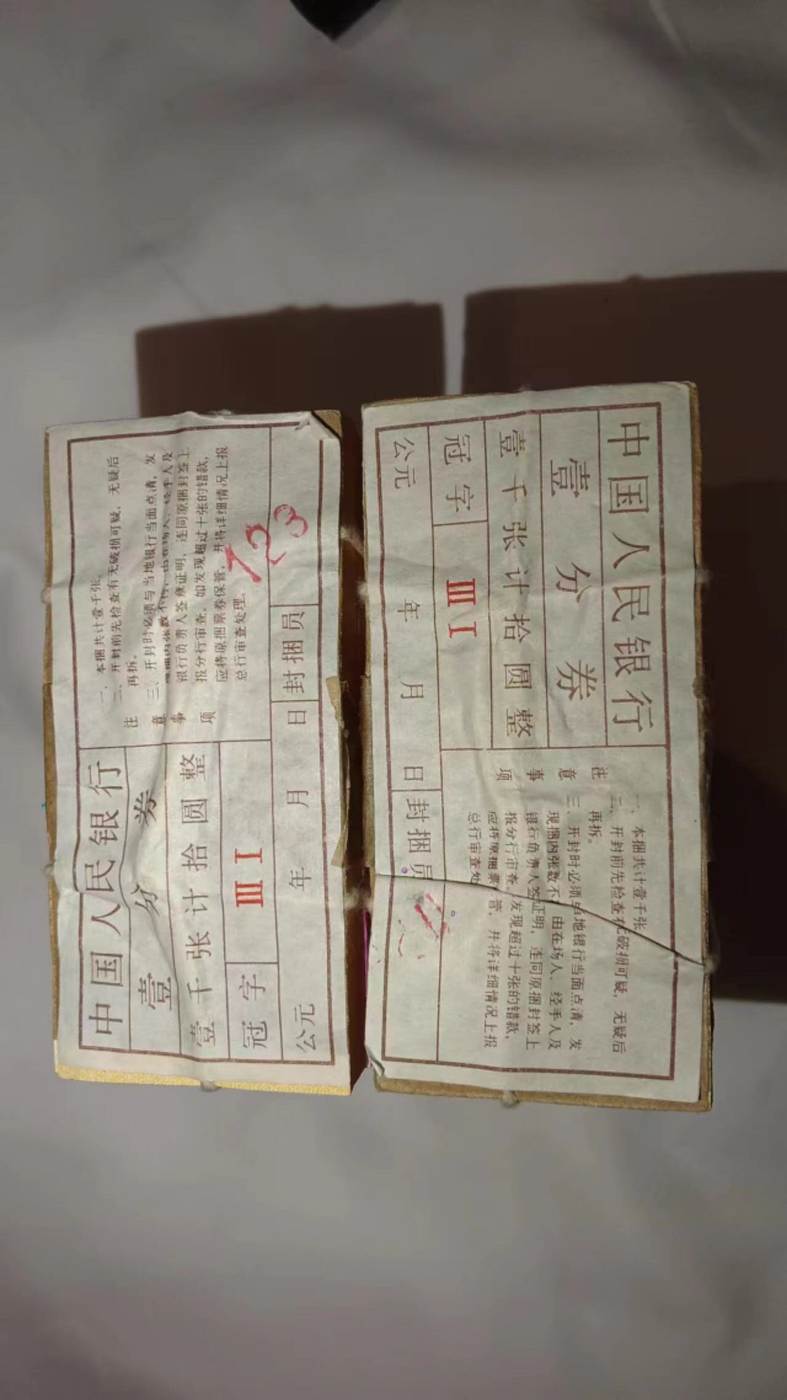 中国人民银行
壹分券
壹千张计拾圆整
冠字 Ⅲ Ⅰ
公元 年 月 日 封捆员
注意事项
一、本捆共计壹千张。
二、开封前先检查有无破损可疑，无疑后
再拆。
三、开封时必须与当地银行当面点清，发
银行负责人签章证明，连同原捆封签上
报分行审查，如发现超过十张的错款，
应将原捆票券保管，并将详细情况上报
总行审查处理。
中国人民银行
壹分券
壹千张计拾圆整
冠字 Ⅲ Ⅰ
公元 年 月 日 封捆员
注意事项
一、本捆共计壹千张
二、开封前先检查 破损可疑，无疑后
再拆。
三、开封时必须 地银行当面点清，发
现捆内张数不 由在场人、经手人及
银行负责人签 证明，连同原捆封签上
报分行审查， 发现超过十张的错款，
应将原捆票 管，并将详细情况上报
总行审查处